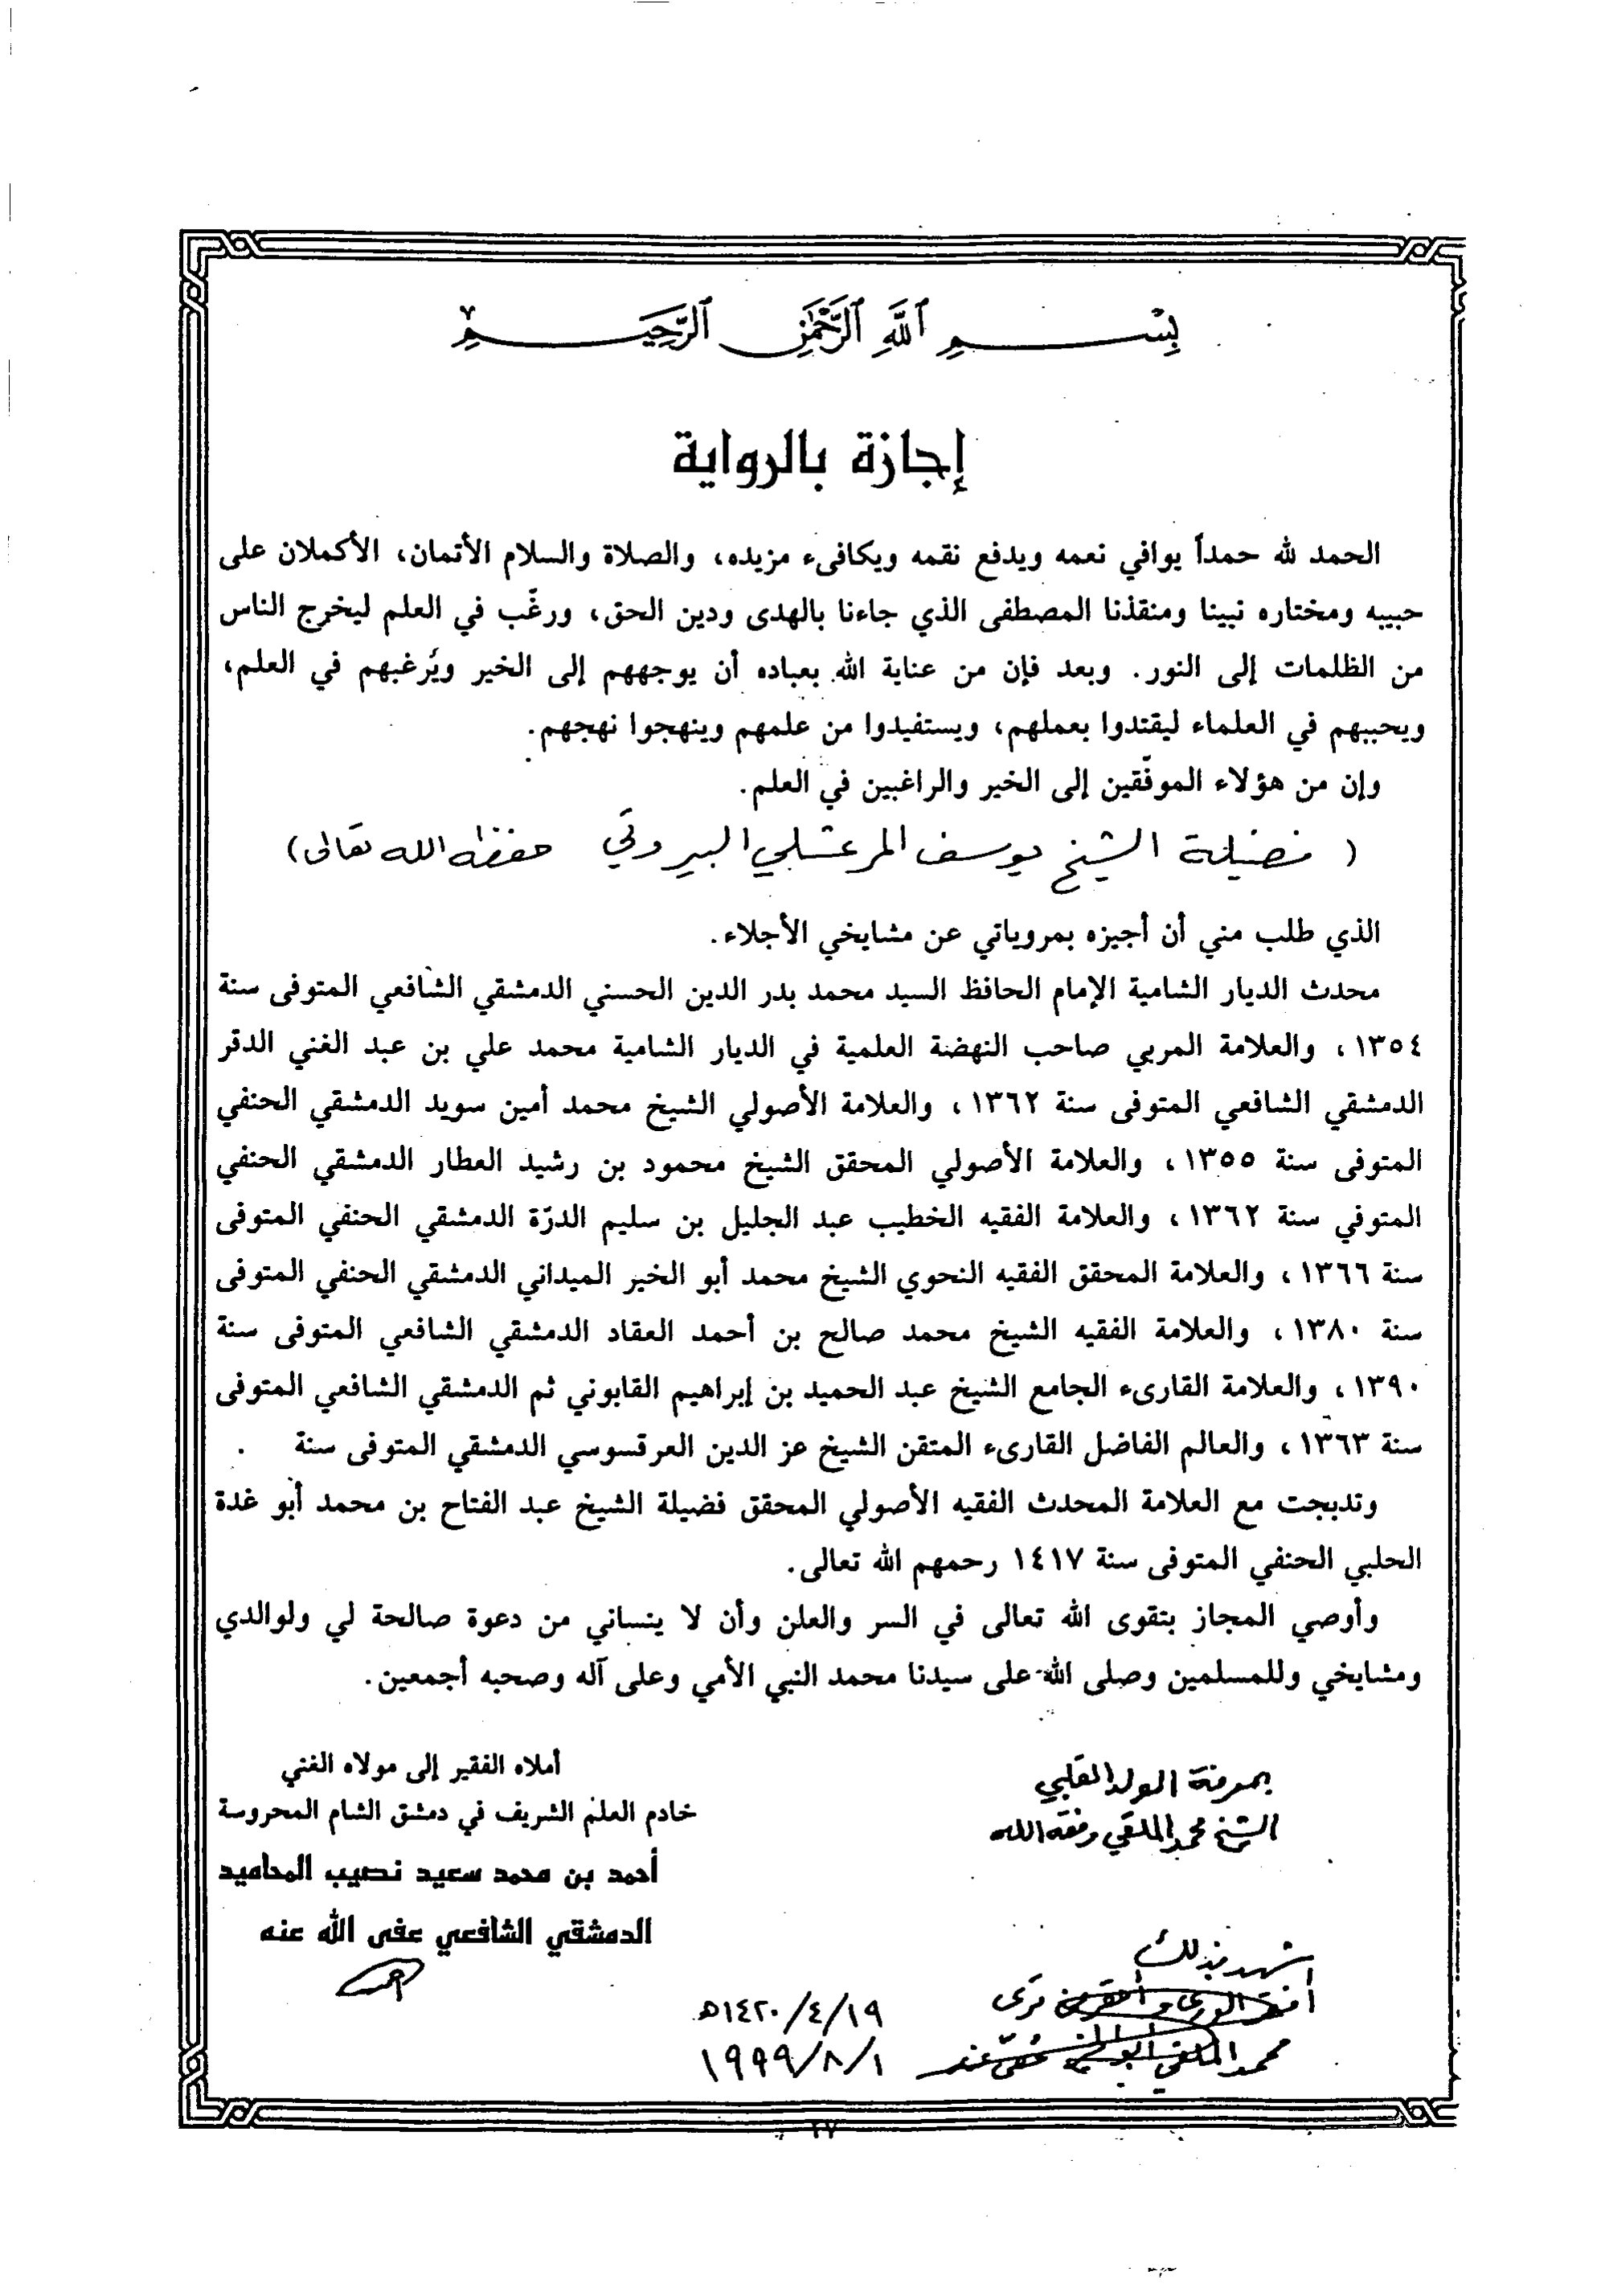 بِسْمِ ٱللَّهِ ٱلرَّحْمَٰنِ ٱلرَّحِيمِ
إجازة بالرواية
الحمد لله حمداً يوافي نعمه ويدفع نقمه ويكافىء مزيده، والصلاة والسلام الأتمان، الأكملان على
حبيبه ومختاره نبينا ومنقذنا المصطفى الذي جاءنا بالهدى ودين الحق، ورغّب في العلم ليخرج الناس
من الظلمات إلى النور. وبعد فإن من عناية الله بعباده أن يوجههم إلى الخير ويُرغبهم في العلم،
ويحببهم في العلماء ليقتدوا بعملهم، ويستفيدوا من علمهم وينهجوا نهجهم.
وإن من هؤلاء الموفّقين إلى الخير والراغبين في العلم.
( فضيلة الشيخ يوسف المرعشلي البيروتي حفظه الله تعالى)
الذي طلب مني أن أجيزه بمروياتي عن مشايخي الأجلاء.
محدث الديار الشامية الإمام الحافظ السيد محمد بدر الدين الحسني الدمشقي الشافعي المتوفى سنة
١٣٥٤، والعلامة المربي صاحب النهضة العلمية في الديار الشامية محمد علي بن عبد الغني الدقر
الدمشقي الشافعي المتوفى سنة ١٣٦٢، والعلامة الأصولي الشيخ محمد أمين سويد الدمشقي الحنفي
المتوفى سنة ١٣٥٥، والعلامة الأصولي المحقق الشيخ محمود بن رشيد العطار الدمشقي الحنفي
المتوفي سنة ١٣٦٢، والعلامة الفقيه الخطيب عبد الجليل بن سليم الدرّة الدمشقي الحنفي المتوفى
سنة ١٣٦٦، والعلامة المحقق الفقيه النحوي الشيخ محمد أبو الخير الميداني الدمشقي الحنفي المتوفى
سنة ١٣٨٠، والعلامة الفقيه الشيخ محمد صالح بن أحمد العقاد الدمشقي الشافعي المتوفى سنة
١٣٩٠، والعلامة القارىء الجامع الشيخ عبد الحميد بن إبراهيم القابوني ثم الدمشقي الشافعي المتوفى
سنة ١٣٦٣، والعالم الفاضل القارىء المتقن الشيخ عز الدين العرقسوسي الدمشقي المتوفى سنة .
وتدبجت مع العلامة المحدث الفقيه الأصولي المحقق فضيلة الشيخ عبد الفتاح بن محمد أبو غدة
الحلبي الحنفي المتوفى سنة ١٤١٧ رحمهم الله تعالى.
وأوصي المجاز بتقوى الله تعالى في السر والعلن وأن لا ينساني من دعوة صالحة لي ولوالدي
ومشايخي وللمسلمين وصلى الله على سيدنا محمد النبي الأمي وعلى آله وصحبه أجمعين.
بمعرفة الولد القلبي
الشيخ محمد الملقي وفقه الله
أملاه الفقير إلى مولاه الغني
خادم العلم الشريف في دمشق الشام المحروسة
أحمد بن محمد سعيد نصيب المحاميد
الدمشقي الشافعي عفى الله عنه
أحمد
شهد بذلك
أفقر الورى وأحقر من ترى
محمد الملقي
١٤٢٠/٤/١٩هـ
١٩٩٩/٨/١
٢٧